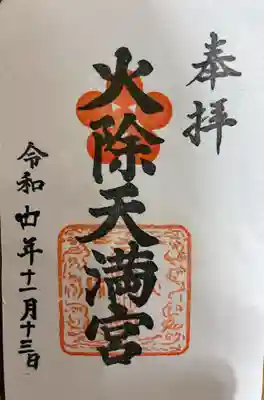 奉拝
火除天満宮
令和年十一月十三日